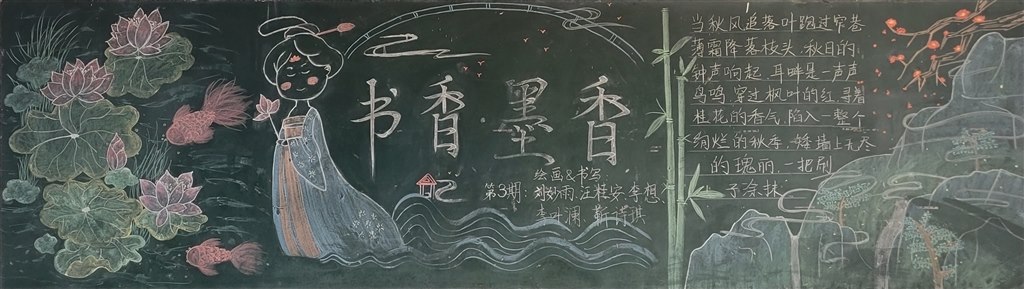 书香墨香
绘画&书写
第3期: 刘姣雨 汪桂安 李想
李叶澜
当秋风追落叶跑过窄巷
薄霜降落枝头,秋日的
钟声响起,耳畔是一声声
鸟鸣,穿过枫叶的红,寻着
桂花的香气,陷入一整个
绚烂的秋季,矮墙上无尽
的瑰丽,一把刷
子涂抹